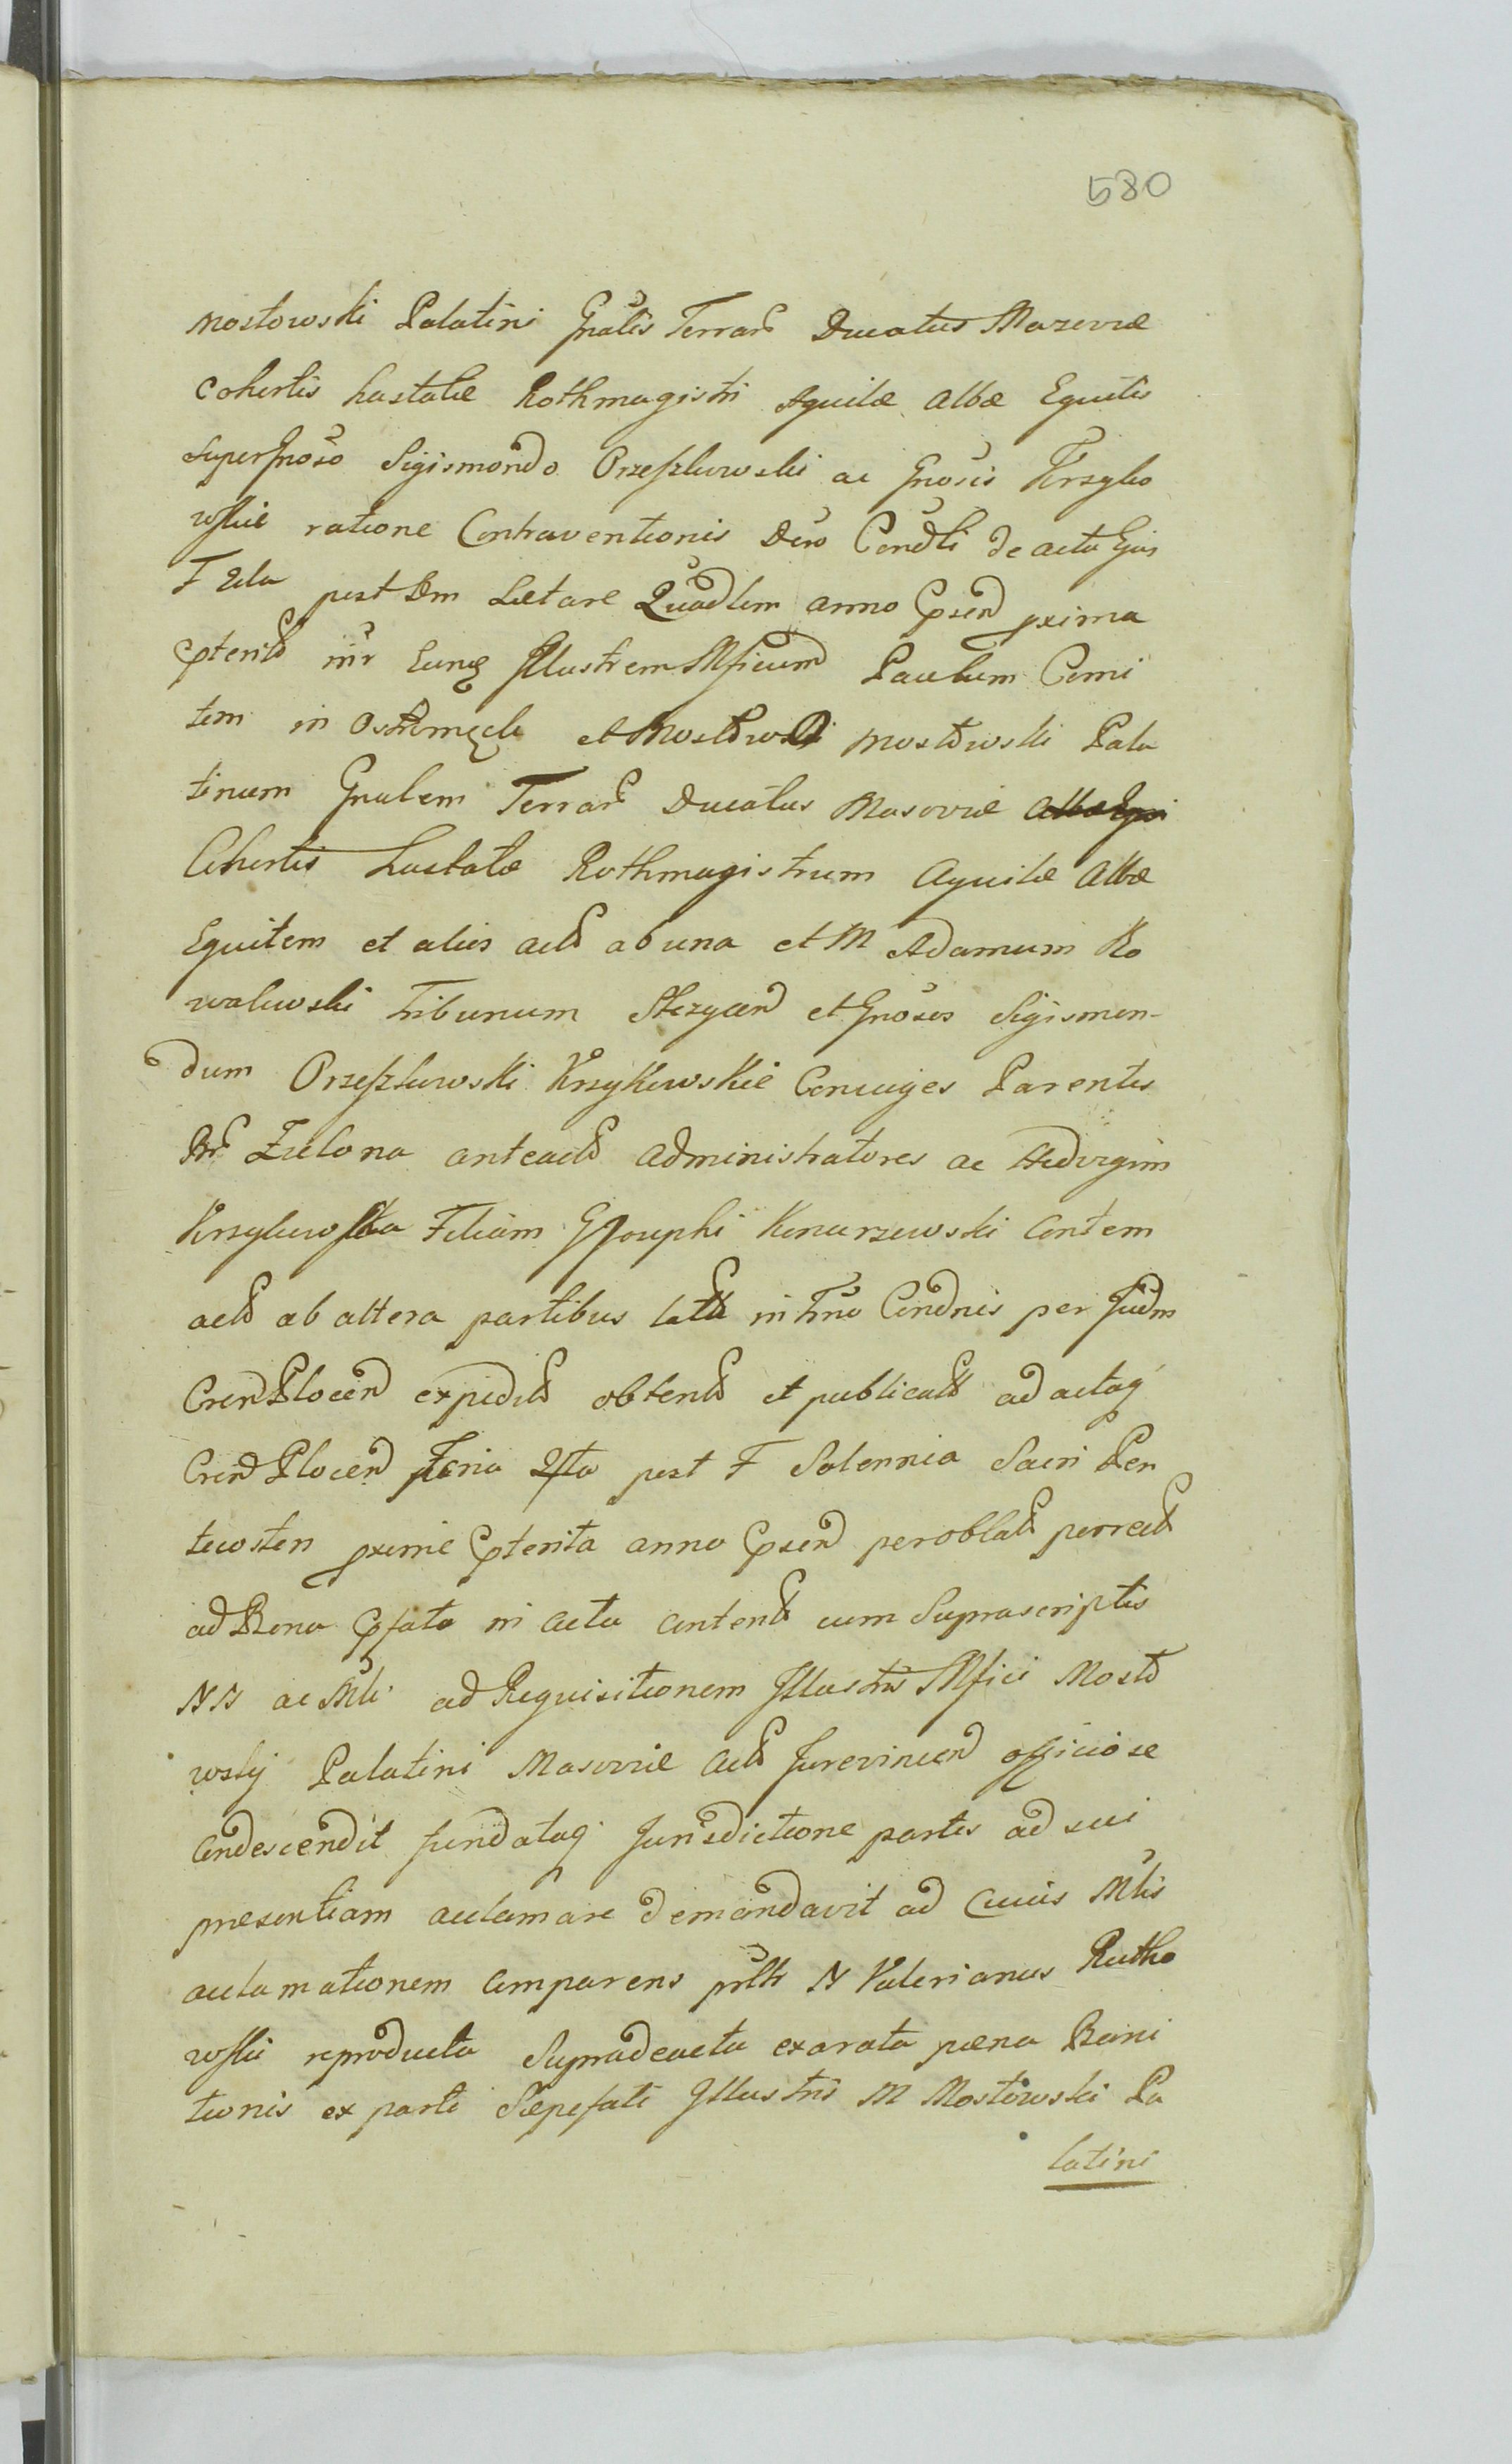 580
Mostowski Palatini Gnalis Terrar Ducatus Mazoviæ
Cohortis hastatæ Rothmagistri Aquilæ Albæ Equitis
super Gnoso Sigismondo Orzeszkowski ac Gnosis Krzyko
wskie ratione Contraventionis Dcro Condli de actu Ejus
F 2da post Dm Lætare Quadlem anno Præsen proxima
Præterit inr Eunq Illustrem Mficum Paulum Comi
tem in Ostromęck et Mostowski Mostowski Pala
tinum Gnalem Terrar Ducatus Masoviæ
Cohortis hastatæ Rothmagistrum Aquilæ Albæ
Equitem et alios act ab una et M Adamum Ko
walewski Tribunum et Gnosos Sigismun-
dum Orzeszkowski Krzykowskie Conjuges Parentes
Br Zielona anteact administratores ac Hedvigim
Krzykowska Filiam G Josephi Konarzewski Contem
act ab altera partibus lat in Tno Condnis per Judm
Cren Plocen expedit obtent et publicat ad actaq
Cren Plocen Feria 4ta post F Solennia Sacri Pen
tecosten proxime Præterita anno Præsen per oblat porrect
ad Bona Præfata in actu content cum Suprascriptis
NN ac Mli ad Requisitionem Illustris Mfici Mosto
wsky Palatini Masoviæ act Jurevincen officiose
condescendit fundataq Jurisdictione partes ad sui
præsentiam acclamare demandavit ad cuius Mlis
acclamationem comparens prlts N Valerianus Rutko
wski reproducta Supradeacta exarata pæna Bani
tionis ex parte Sæpefati Illustris M Mostowski Pa
latini